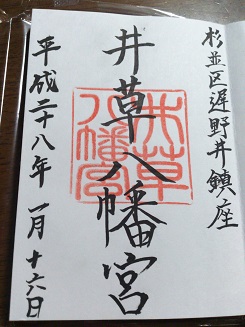 杉並区遅野井鎮座
井草八幡宮
井草八幡宮
平成二十八年 一月十六日